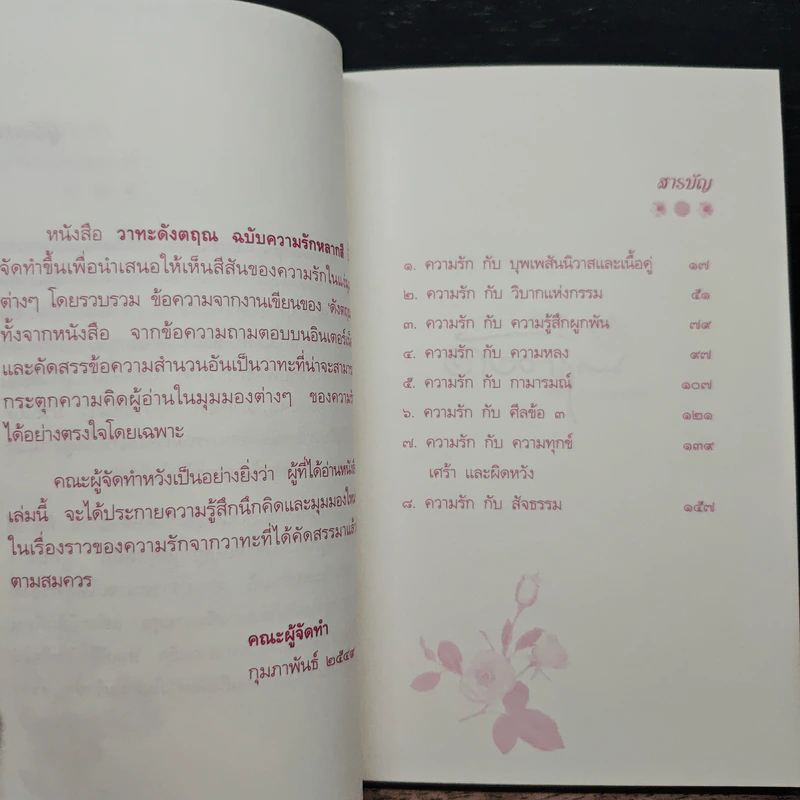 หนังสือ วาทะดังตฤณ ฉบับความรักหลากสี
จัดทำขึ้นเพื่อนำเสนอให้เห็นสีสันของความรักใน
ต่างๆ โดยรวบรวม ข้อความจากงานเขียนของ ‘ดังตฤณ
ทั้งจากหนังสือ จากข้อความถามตอบบนอินเตอร์เน็
และคัดสรรข้อความสำนวนอันเป็นวาทะที่น่าจะสามาร
กระตุกความคิดผู้อ่านในมุมมองต่างๆ ของความรั
ได้อย่างตรงใจโดยเฉพาะ
คณะผู้จัดทำหวังเป็นอย่างยิ่งว่า ผู้ที่ได้อ่านหนังสื
เล่มนี้ จะได้ประกายความรู้สึกนึกคิดและมุมมองใหม
ในเรื่องราวของความรักจากวาทะที่ได้คัดสรรมาแล้ว
ตามสมควร
คณะผู้จัดทำ
กุมภาพันธ์ ๒๕๔๙
สารบัญ
๑. ความรัก กับ บุพเพสันนิวาสและเนื้อคู่ ๑๗
๒. ความรัก กับ วิบากแห่งกรรม ๕๑
๓. ความรัก กับ ความรู้สึกผูกพัน ๗๙
๔. ความรัก กับ ความหลง ๙๗
๕. ความรัก กับ กามารมณ์ ๑๐๗
๖. ความรัก กับ ศีลข้อ ๓ ๑๒๑
๗. ความรัก กับ ความทุกข์ ๑๓๙
เศร้า และผิดหวัง
๘. ความรัก กับ สัจธรรม ๑๕๗